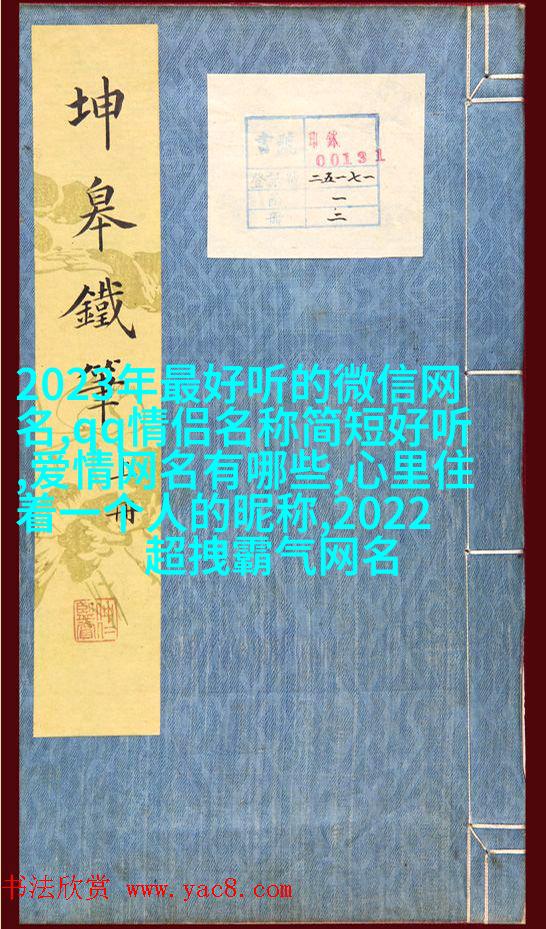 坤皋鐵筆
上冊
書號 印鉥
00131
二五一七一
一
二
冊
2023年最好听的微信网
名,qq情侣名称简短好听
,爱情网名有哪些,心里住
着一个人的昵称,2022
超拽霸气网名
书法欣赏 www.yac8.com